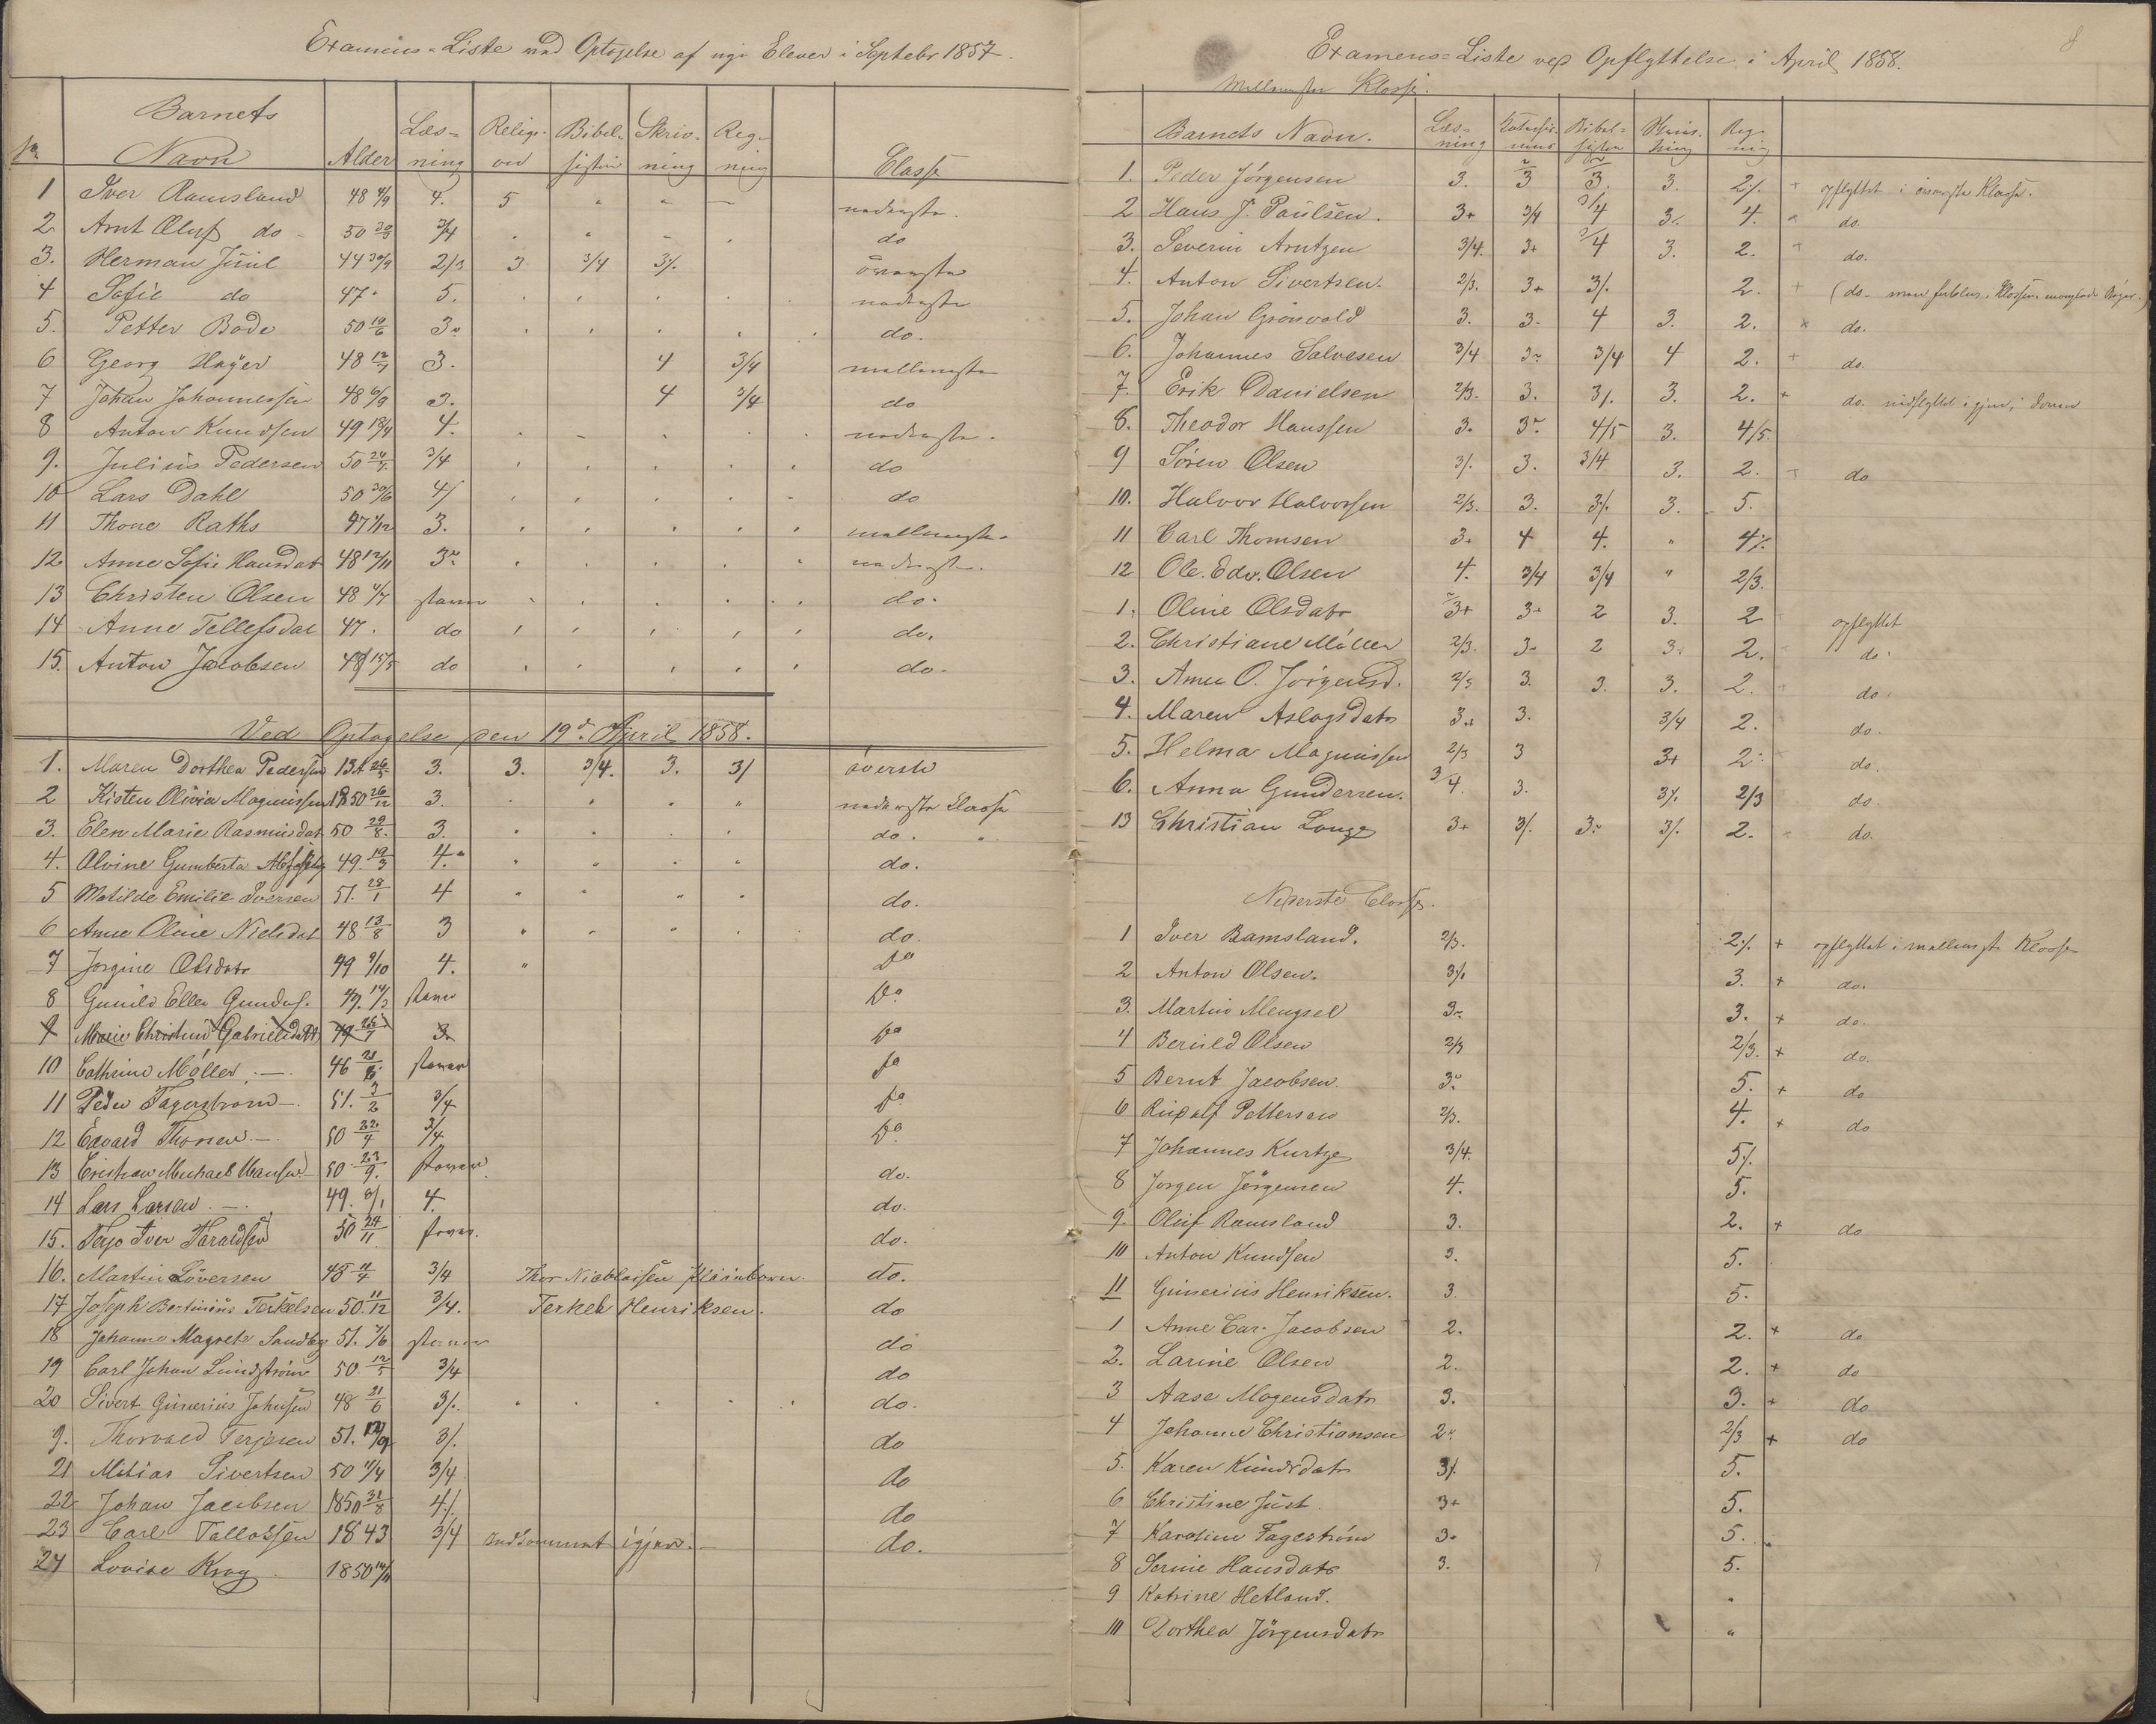 Examens-Liste ved Optagelse af nye Elever i Septebr 1857.
No Barnets Navn Alder Læsning Religion Bibelhistorie Skrivning Regning Classe
1 Iver Ramsland 48 4/9 4. 5 " " — nederste.
2 Arnt Oluf do 50 3/4 . " . do
3. Herman Juul 44 30/9 2/3 3 3/4 3/. överste
4 Sofie do 47 5. nederste
5. Petter Bode 50 19/6 3. do.
6 Georg Høyer 48 3. 4 3/4 mellemste
7 Johan Johannessen 48 6/9 3. 4 3/4 do
8 Anton Knudsen 49 18/9 4. nederste.
9. Julius Pedersen 50 3/4 do
10 Lars Dahl 50 30/6 4/ do
11 Thone Raths 47 1/12 3. mellemste.
12 Anne Sofie Hansdat 48 12/11 3. nederste.
13 Christen Olsen 48 4/7 staver do.
14 Anne Tellefsdat 47. do do.
15. Anton Jacobsen 48 15/5 do do.
Ved Optagelse den 19d April 1858.
1. Maren Dorthea Pedersen 3. 3. 3/4. 3. 3/ överste
2 Kisten Olivia Magnussen 1850 26/12 3. nederste Classe
3. Elen Marie Rasmusdat 50 29/8. 3. do. "
4. Alvine Gumberta 49. 19/3 4. do.
5 Matilde Emilie Iversen 51. 28/1 4 do.
6 Anne Oline Nielsdat 48 13/8 3 do.
7 Jorgine Olsdatr 49 9/10 4. " do
8 Gunild Ellen 47. 14/3 staver do
9 Marie Christine Gabrielsdatt 49 26/1 3 do
10 Cathrine Möller — 46 staver do
11 Peder Fagerstrøm — 51. 3/2 3/4 do
12 Edvard Thorsen — 50 22/4 3/4 do
13 Cristian Michael Hansen — 50 23/9. staver do.
14 Lars Larsen — 49. 8/1 4. do.
15. Terje Iver Haraldsen 50 24/11 staver. do.
16. Martin Löversen 48 11/4 3/4 Thor Nicolaisen do.
17 Joseph Bertinius Terkelsen 50. 11/12 3/4. Terkel Henriksen. do
18 Johanne Magrete Sandbg 51. 7/6 staver do
19 Carl Johan Lundström 50. 12/5 3/4 do
20 Sivert Gunerius Johnsen 48 21/6 3/. do.
9. Thorvald Terjesen 51. 3/. do
21 Mitias Sivertsen 50 11/4 3/4 do
22 Johan Jacobsen 1850 31/8 4/. do
23 Carl Tallaksen 1843 3/4 igjen. — do.
24 Lovise Krog 1850 14/11
8
Examens-Liste ved Opflyttelse i April 1858.
Mellemste Klasse.
Barnets Navn. Læsning Katekismus Bibelhistorie Skrivning Regning
1. Peder Jörgensen 3. 3 3. 3. 2/. + opflyttet i överste Klasse.
2 Hans J. Paulsen. 3+ 3/4 3/4 3. 4. " do.
3. Severin Arntzen 3/4. 3+ 3/4 3. 2. + do.
4. Anton Sivertsen. 2/3. 3+ 3/. 2. + (do. men forblev i Klassen, manglede Bøger.)
5. Johan Grönvold 3. 3- 4 3. 2. × do.
6. Johannes Salvesen 3/4 3. 3/4 4 2. + do.
7. Erik Danielsen 2/3. 3. 3/. 3. 2. + do. nedflyttet igjen,
8. Theodor Hanssen 3. 3. 4/5 3. 4/5.
9 Sören Olsen 3/. 3. 3/4 3. 2. + do
10. Halvor Halvorsen 2/3. 3. 3/. 3. 5.
11 Carl Thomsen 3+ 4 4. " 4/.
12 Ole. Edv. Olsen 4. 3/4 3/4 " 2/3.
1. Oline Olsdatr 3+ 3+ 2 3. 2 opflyttet
2. Christiane Möller 2/3. 3- 2 3. 2. do.
3. Anne O. Jörgensd. 2/3 3. 3. 3. 2. + do.
4. Maren Aslagsdatr 3+ 3. 3/4 2. do.
5. Helma Magnussen 2/3 3 3+ 2. do.
6. Anna Gundersen. 3/4. 3. 3/. 2/3 do.
13 Christian Longe 3+ 3/. 3. 3/. 2. do.
Nederste Classe.
1 Iver Ramsland. 2/3. 2/. + opflyttet i mellemste Klasse
2 Anton Olsen. 3/. 3. + do.
3. Martin Mengsel 3. 3. + do.
4 Beruld Olsen 2/3 2/3. + do.
5 Bernt Jacobsen. 3. 5. + do
6 Rudolf Pettersen 2/3. 4. + do
7 Johannes Kurtze 3/4. 5/.
8 Jorgen Jörgensen 4. 5.
9. Oluf Ramsland 3. 2. + do
10 Anton Knudsen 3. 5.
11 Gunerius Henriksen. 3. 5.
1 Anne Car. Jacobsen 2. 2. + do
2. Larine Olsen 2. 2. + do
3 Aase Mogensdatr 3. 3. + do
4 Johanne Christiansen 2. 2/3 + do
5. Karen Knudsdatr 3/. 5.
6 Christine Just. 3+ 5.
7 Karoline Fagerström 3. 5.
8 Serine Hansdatr 3. 5.
9 Katrine Hetland. "
10 Dorthea Jörgensdatr "